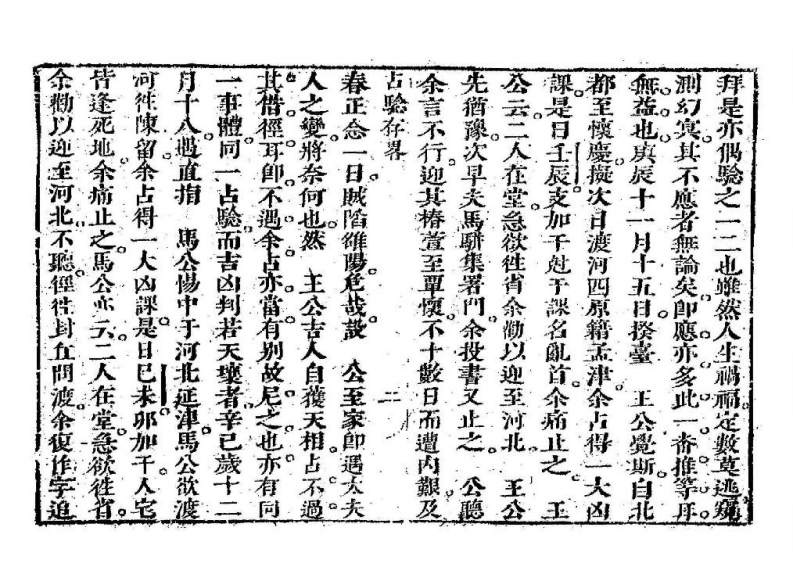 拜是亦偶驗之一二也雖然人生禍福定數莫逃窺
測幻冥其不應者無論矣卽應亦多此一番推等耳
無益也庚辰十一月十五日揆臺　王公覺斯自北
都至懷慶擬次日渡河回原籍孟津余占得一大凶
課是日壬辰支加干尅干課名亂首余痛止之　王
公云二人在堂急欲徃省余勸以迎至河北　王公
先猶豫次早夫馬駢集署門余投書又止之　公聽
余言不行迎其椿萱至覃懷不十數日而遭內艱及
占驗存畧　二
春正念一日賊陷雒陽危哉設　公至家卽遇太夫
人之變將奈何也然　王公吉人自獲天相占不過
其借徑耳卽不遇余占亦當有別故尼之也亦有同
一事體同一占驗而吉凶判若天壤者辛巳歲十二
月十八遇直指　馬公惕中于河北延津馬公欲渡
河徃陳留余占得一大凶課是日巳未卯加干人宅
皆逢死地余痛止之馬公亦云二人在堂急欲徃省
余勸以迎至河北不聽徑徃封丘問渡余復作字追